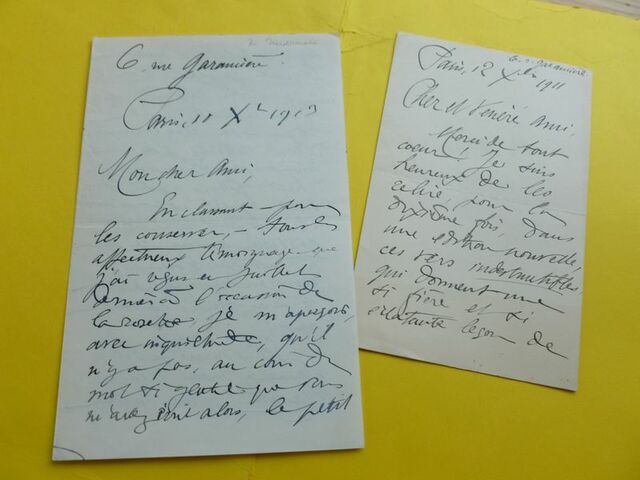 6. rue Garancière.
Paris, 18 Xbre 1913
Mon cher Ami,
En classant – pour
les conserver, – tous les
affectueux témoignages que
j'ai reçus en Juillet
dernier à l'occasion de
la rosette je m'aperçois,
avec inquiétude, qu'il
n'y a pas, au coin du
mot si gentil que vous
m'avez écrit alors, le petit
6. r. Garancière
Paris, 12 Xbre 1911
Cher et Vénéré Ami,
Merci de tout
coeur! Je suis
heureux de les
relire pour la
dixième fois, dans
une édition nouvelle,
ces vers indestructibles
qui donnent une
si fière et si
éclatante leçon de